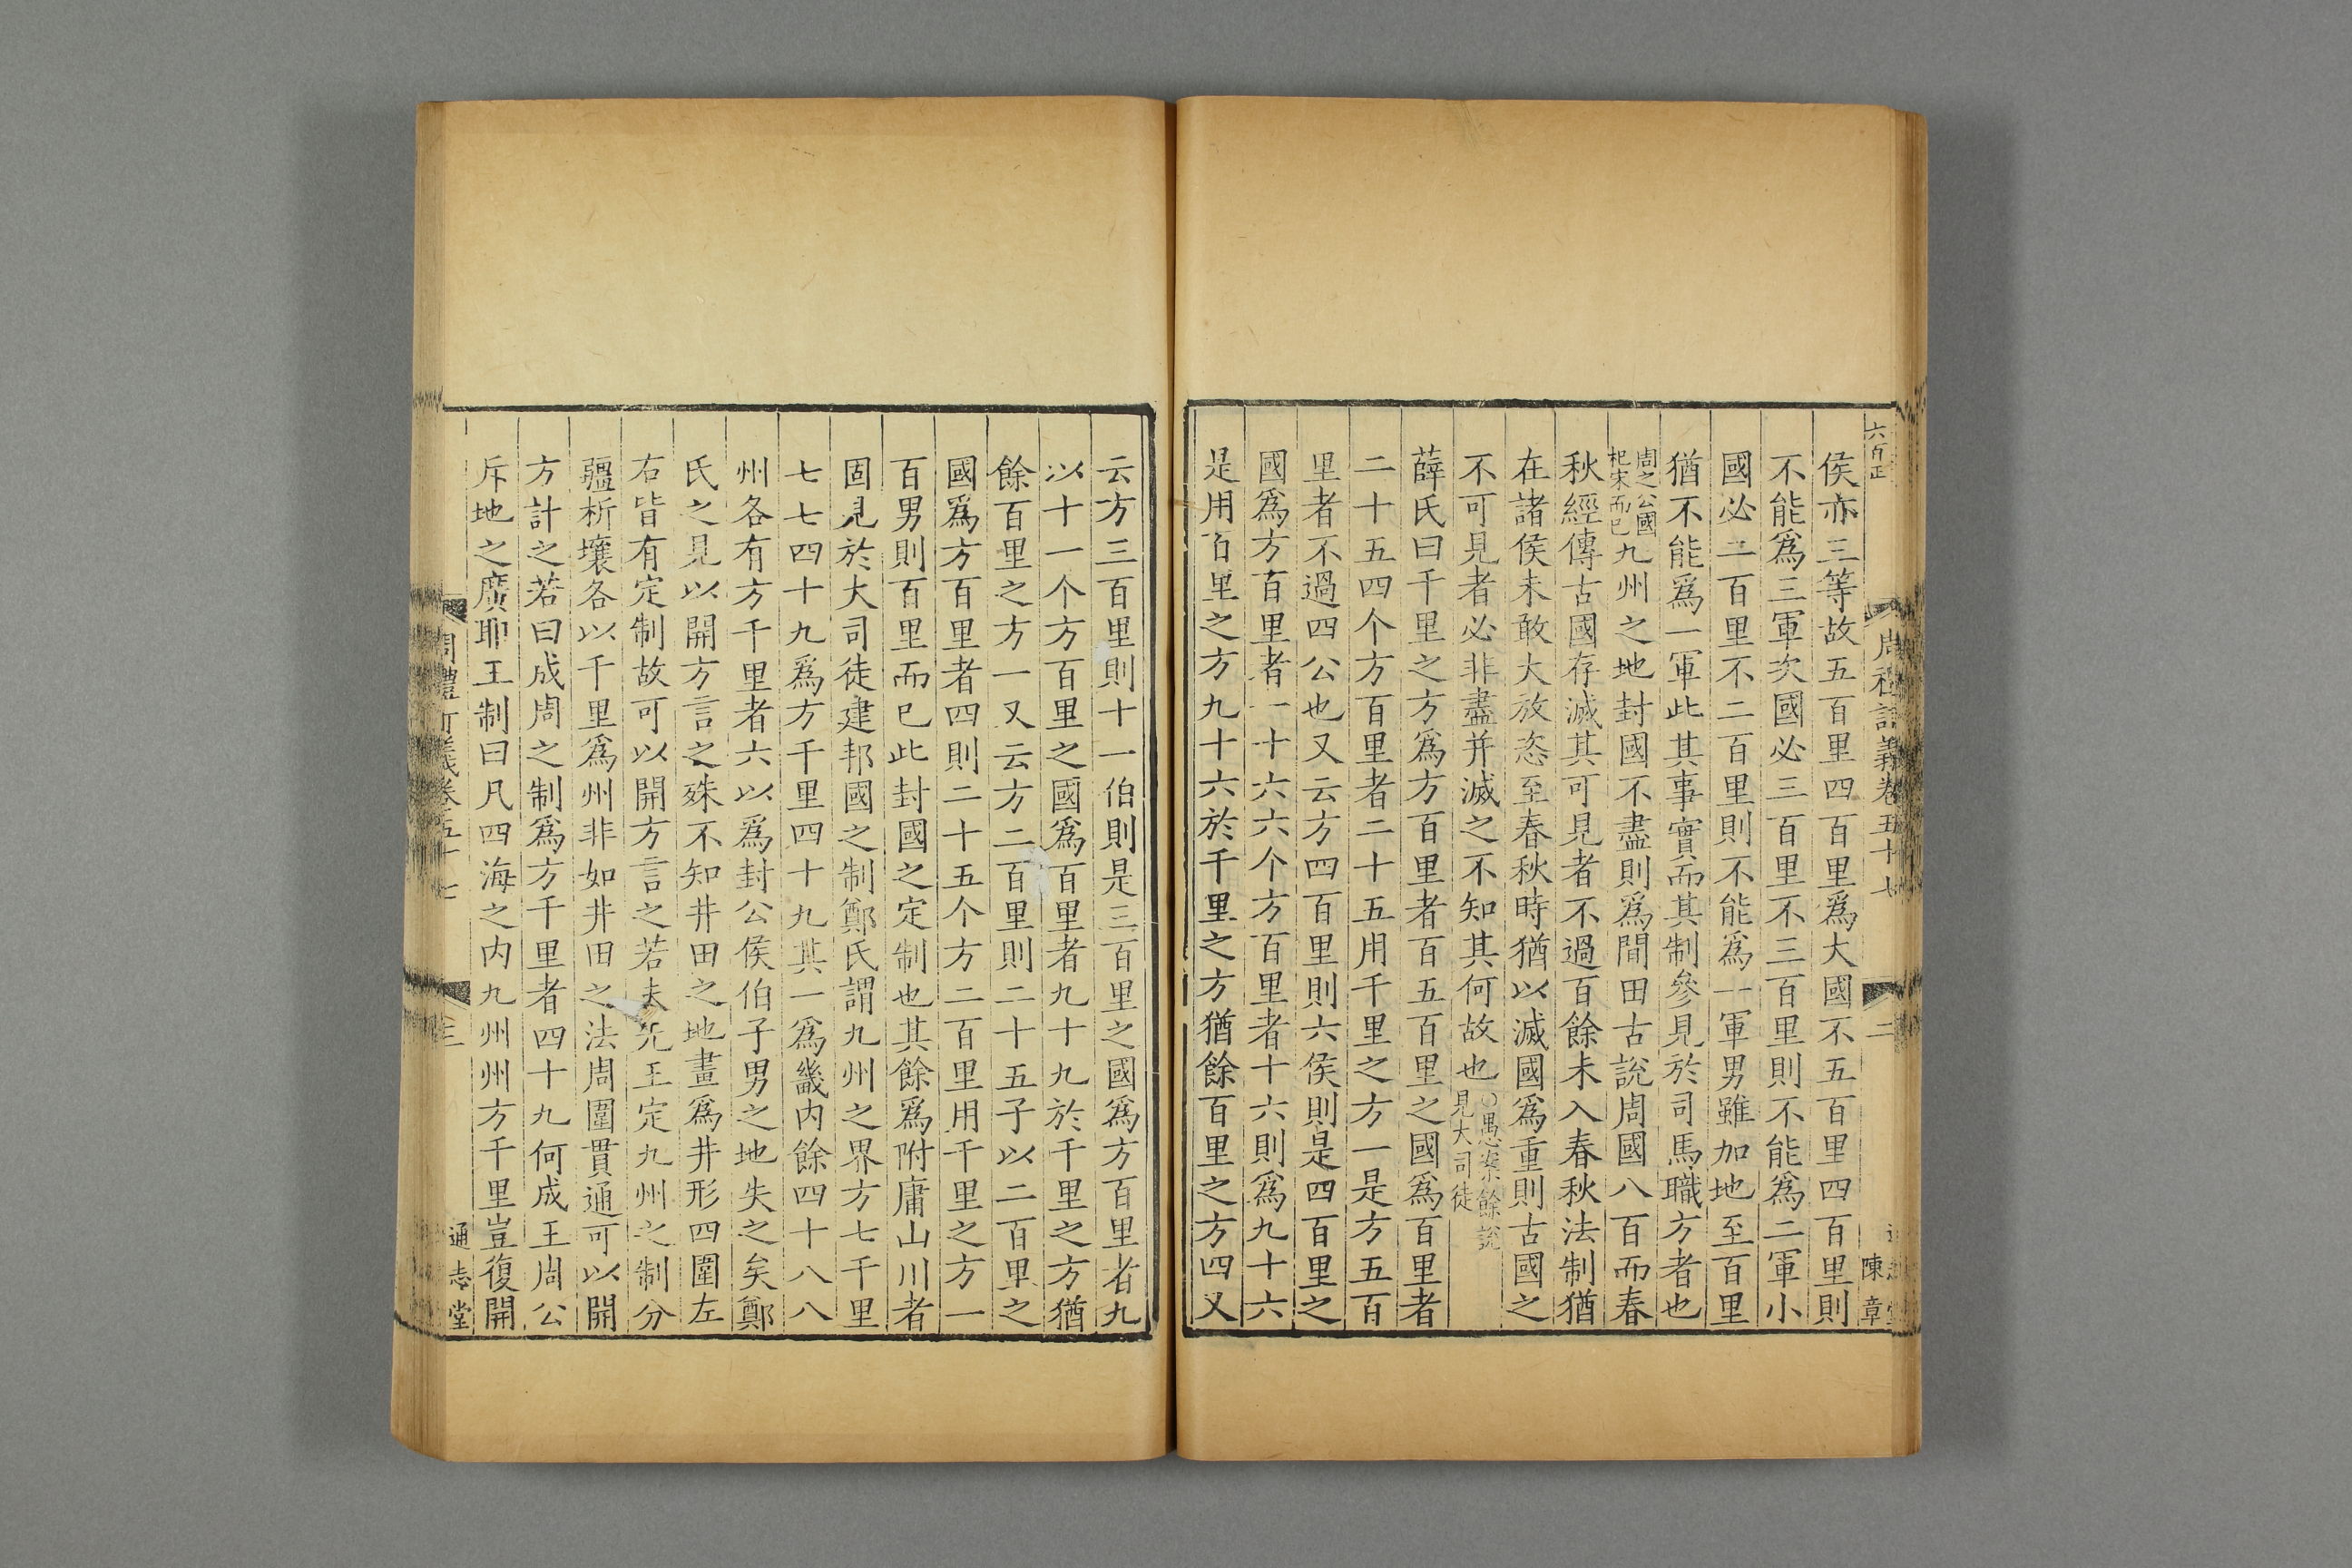 六百正
周禮訂義卷五十七
二
陳章
侯亦三等故五百里四百里爲大國不五百里四百里則
不能爲三軍次國必三百里不三百里則不能爲二軍小
國必二百里不二百里則不能爲一軍男雖加地至百里
猶不能爲一軍此其事實而其制參見於司馬職方者也
周之公國杞宋而已九州之地封國不盡則爲間田古說周國八百而春
秋經傳古國存滅其可見者不過百餘未入春秋法制猶
在諸侯未敢大放恣至春秋時猶以滅國爲重則古國之
不可見者必非盡并滅之不知其何故也○愚案餘說見大司徒
薛氏曰千里之方爲方百里者百五百里之國爲百里者
二十五四个方百里者二十五用千里之方一是方五百
里者不過四公也又云方四百里則六侯則是四百里之
國爲方百里者一十六六个方百里者十六則爲九十六
是用百里之方九十六於千里之方猶餘百里之方四又
云方三百里則十一伯則是三百里之國爲方百里者九
以十一个方百里之國爲百里者九十九於千里之方猶
餘百里之方一又云方二百里則二十五子以二百里之
國爲方百里者四則二十五个方二百里用千里之方一
百男則百里而已此封國之定制也其餘爲附庸山川者
固見於大司徒建邦國之制鄭氏謂九州之界方七千里
七七四十九爲方千里四十九其一爲畿内餘四十八八
州各有方千里者六以爲封公侯伯子男之地失之矣鄭
氏之見以開方言之殊不知井田之地畫爲井形四圍左
右皆有定制故可以開方言之若夫先王定九州之制分
疆析壤各以千里爲州非如井田之法周圍貫通可以開
方計之若曰成周之制爲方千里者四十九何成王周公
斥地之廣耶王制曰凡四海之内九州州方千里豈復開
周禮訂義卷五十七
三
通志堂